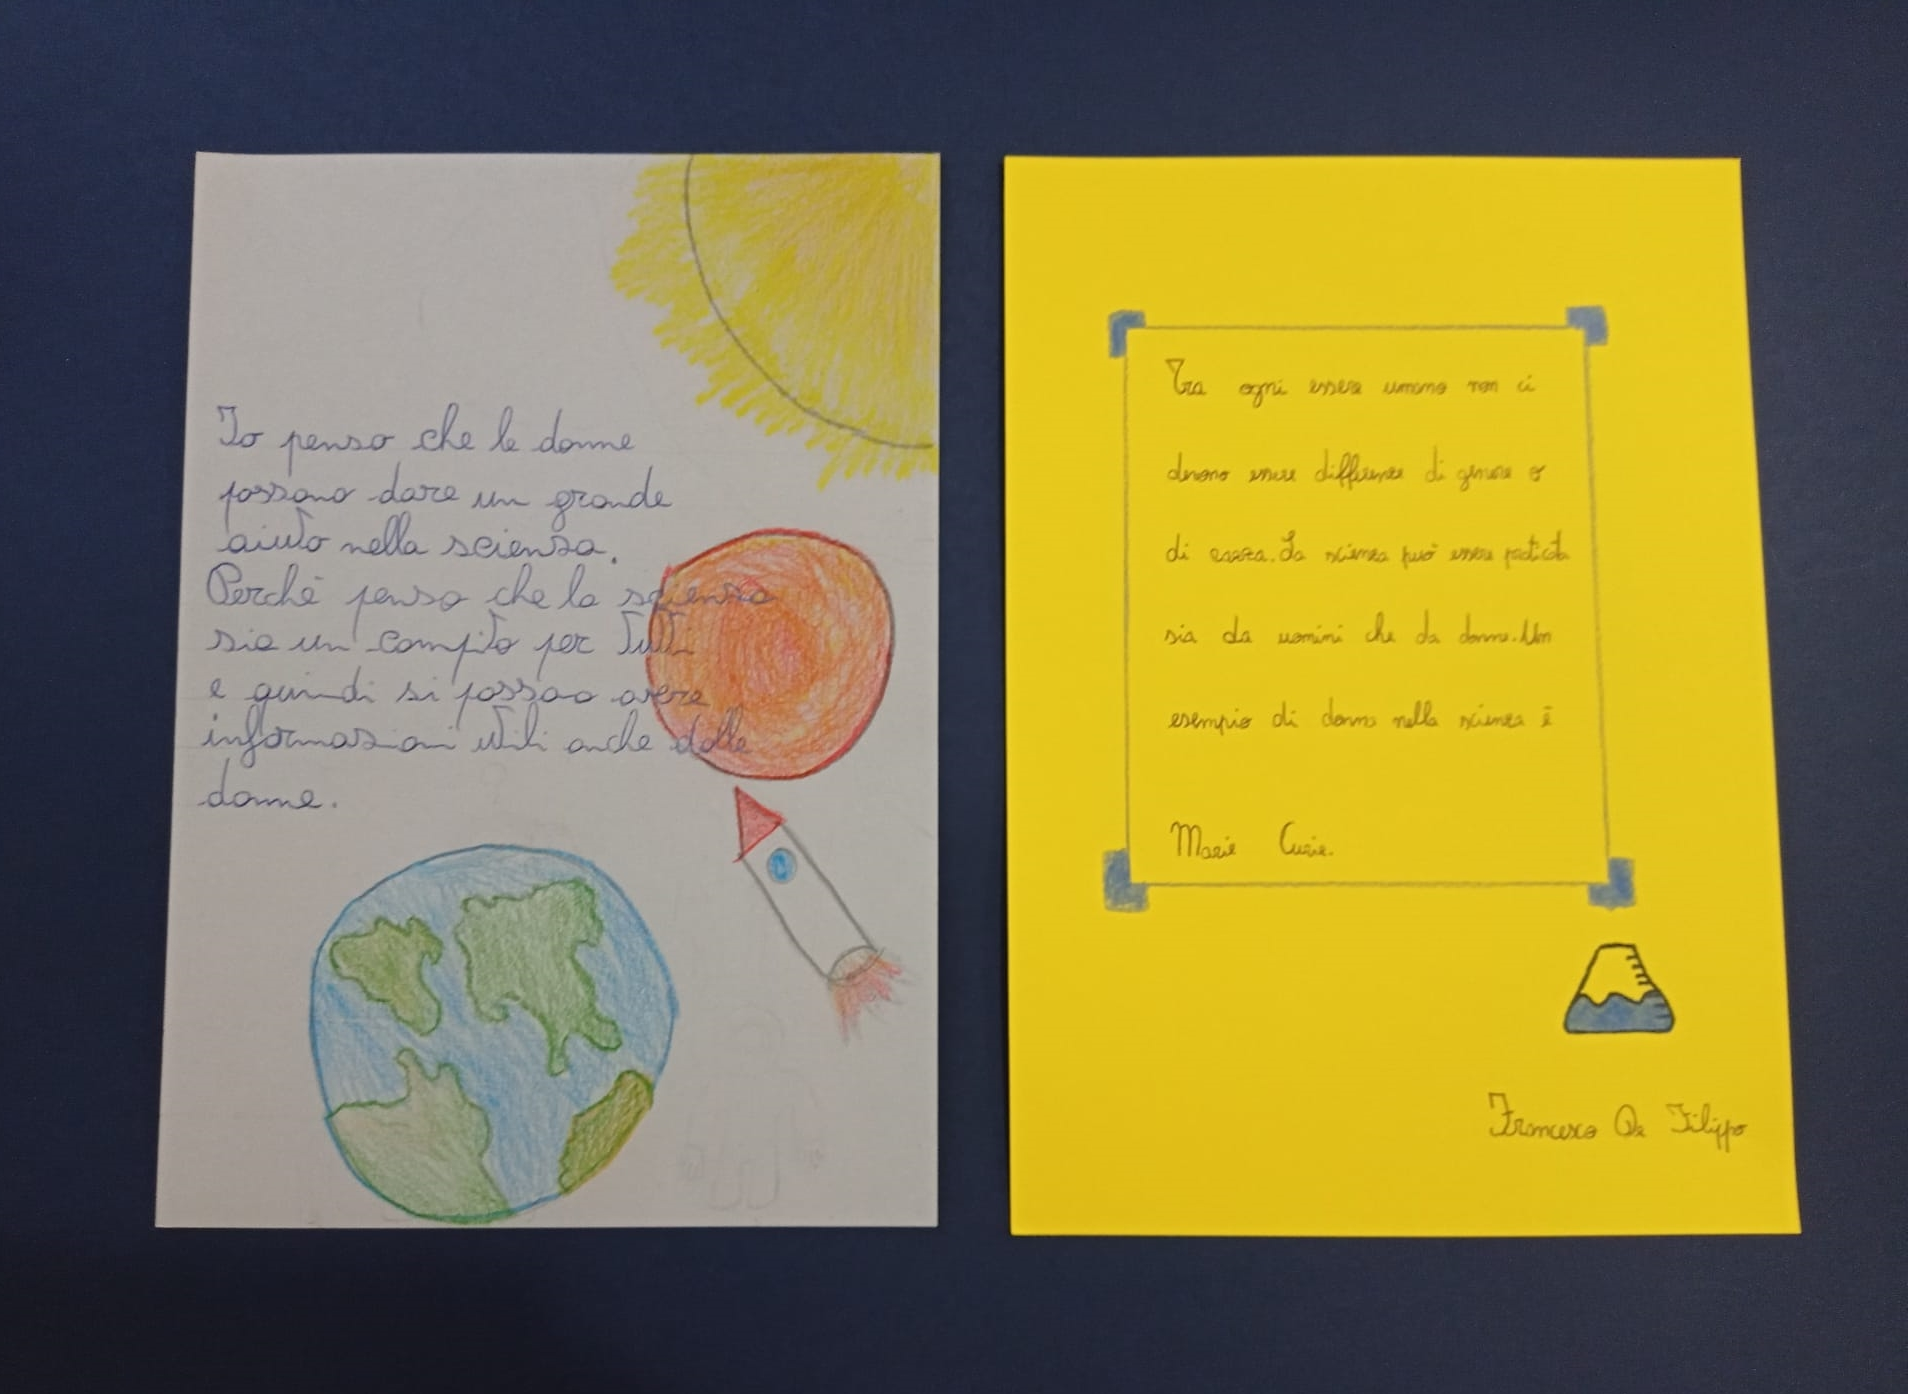 Io penso che le donne
possano dare un grande
aiuto nella scienza.
Perché penso che la scienza
sia un compito per tutti
e quindi si possao avere
informazioni utili anche dalle
donne.
Tra ogni essere umano non ci
devono essere differenze di genere o
di razza. La scienza può essere praticata
sia da uomini che da donne. Un
esempio di donna nella scienza è
Marie Curie.
Francesco De Filippo